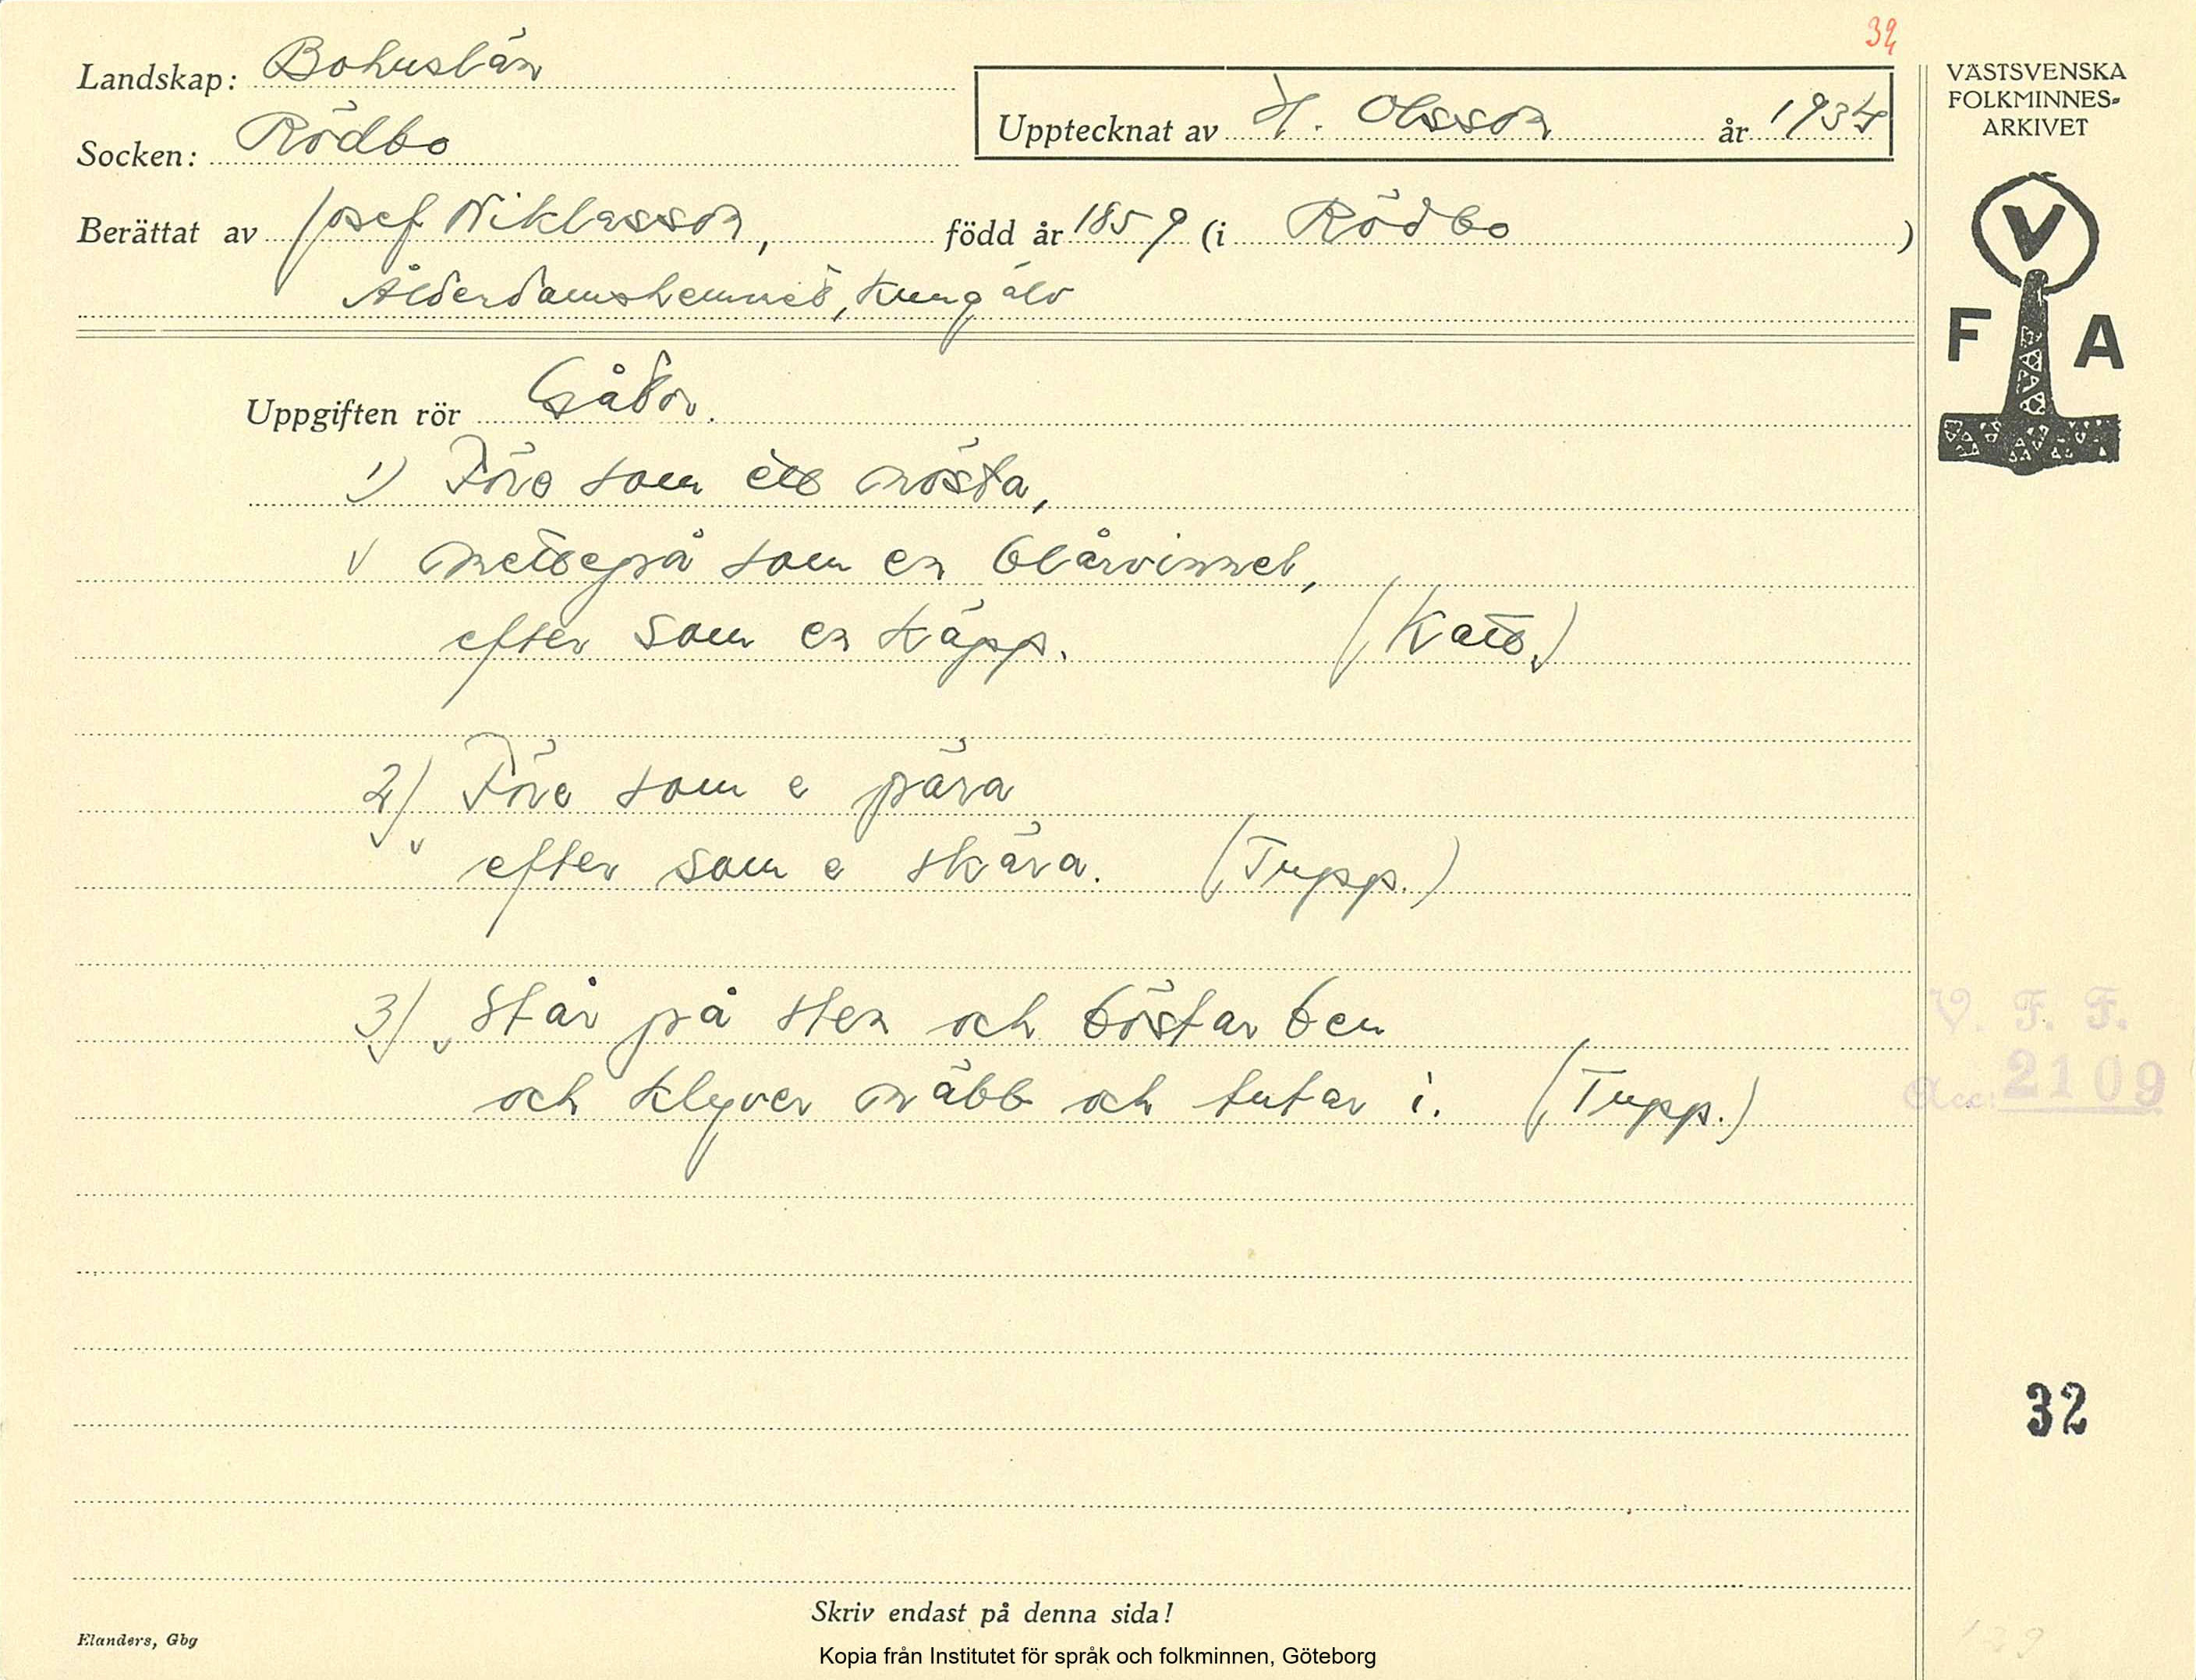 32
Landskap: Bohuslän
Socken: Rödbo
Upptecknat av H. Olsson år 1934
VÄSTSVENSKA
FOLKMINNES-
ARKIVET
V
F A
Berättat av Josef Niklasson, född år 1859 (i Rödbo)
Ålderdomshemmet, Kungälv
Uppgiften rör Gåtor.
1) Före som ett nösta,
v mettepå som en blårvinnel,
efter som en käpp. (Katt.)
2) Före som e pära
efter som e skära. (Tupp.)
3) Står på sten och böstar ben
och klyver näbb och tutar i. (Tupp.)
V. F. F.
Acc: 2109
32
Skriv endast på denna sida!
Elanders, Gbg
Kopia från Institutet för språk och folkminnen, Göteborg